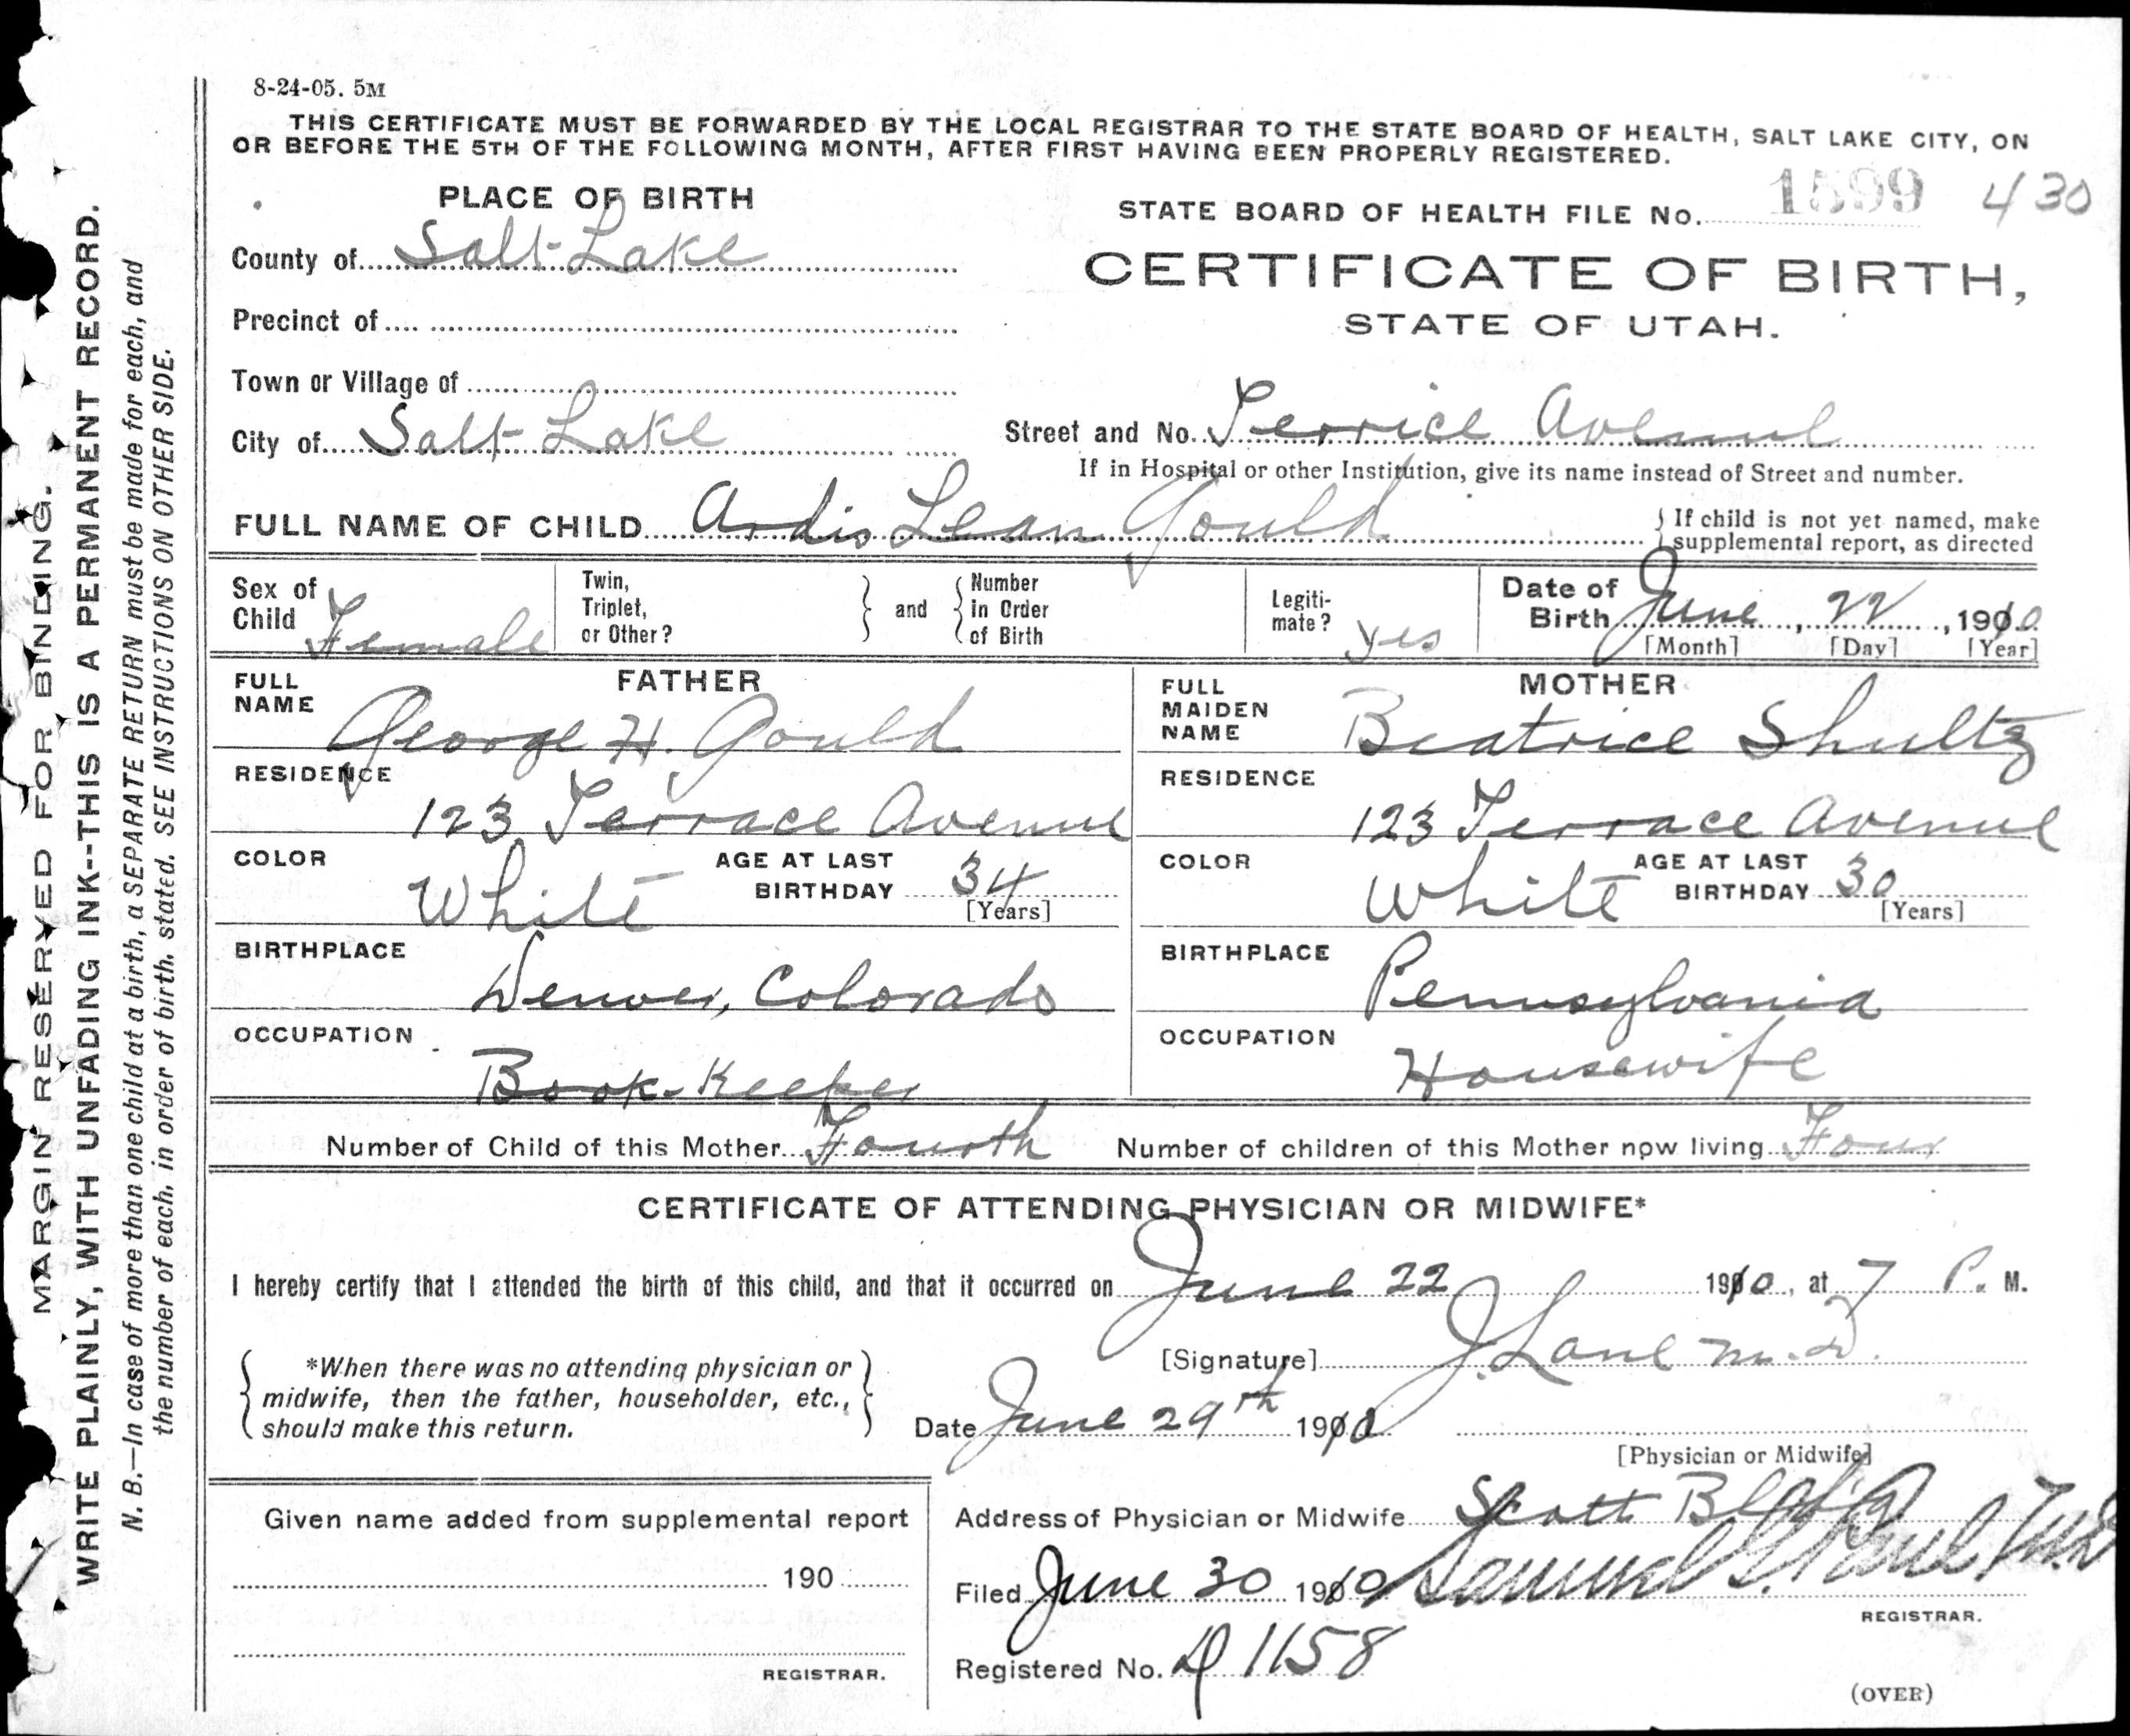 8-24-05. 5M
THIS CERTIFICATE MUST BE FORWARDED BY THE LOCAL REGISTRAR TO THE STATE BOARD OF HEALTH, SALT LAKE CITY, ON
OR BEFORE THE 5TH OF THE FOLLOWING MONTH, AFTER FIRST HAVING BEEN PROPERLY REGISTERED.
PLACE OF BIRTH
STATE BOARD OF HEALTH FILE No. 1599 430
County of Salt Lake
CERTIFICATE OF BIRTH,
Precinct of
STATE OF UTAH.
Town or Village of
City of Salt Lake
Street and No. Terrice Avenue
If in Hospital or other Institution, give its name instead of Street and number.
FULL NAME OF CHILD Ardis Lean Gould
If child is not yet named, make
supplemental report, as directed
Sex of
Child Female
Twin,
Triplet,
or Other?
and
Number
in Order
of Birth
Legiti-
mate? yes
Date of
Birth June, 22, 1910
[Month] [Day] [Year]
FATHER
FULL
NAME
George H. Gould
RESIDENCE
123 Terrace Avenue
COLOR
White
AGE AT LAST
BIRTHDAY 34
[Years]
BIRTHPLACE
Denver, Colorado
OCCUPATION
Book-Keeper
MOTHER
FULL
MAIDEN
NAME
Beatrice Shultz
RESIDENCE
123 Terrace Avenue
COLOR
White
AGE AT LAST
BIRTHDAY 30
[Years]
BIRTHPLACE
Pennsylvania
OCCUPATION
Housewife
Number of Child of this Mother Fourth Number of children of this Mother now living Four
CERTIFICATE OF ATTENDING PHYSICIAN OR MIDWIFE*
I hereby certify that I attended the birth of this child, and that it occurred on June 22 1910, at 7 P. M.
*When there was no attending physician or
midwife, then the father, householder, etc.,
should make this return.
[Signature] J. Lane M.D.
Date June 29th 1910
[Physician or Midwife]
Given name added from supplemental report
190
REGISTRAR.
Address of Physician or Midwife Scott Bldg
Filed June 30 1910 Samuel G. Paul M.D
REGISTRAR.
Registered No. D 1158
(OVER)
MARGIN RESERVED FOR BINDING.
WRITE PLAINLY, WITH UNFADING INK--THIS IS A PERMANENT RECORD.
N. B.—In case of more than one child at a birth, a SEPARATE RETURN must be made for each, and
the number of each, in order of birth, stated. SEE INSTRUCTIONS ON OTHER SIDE.